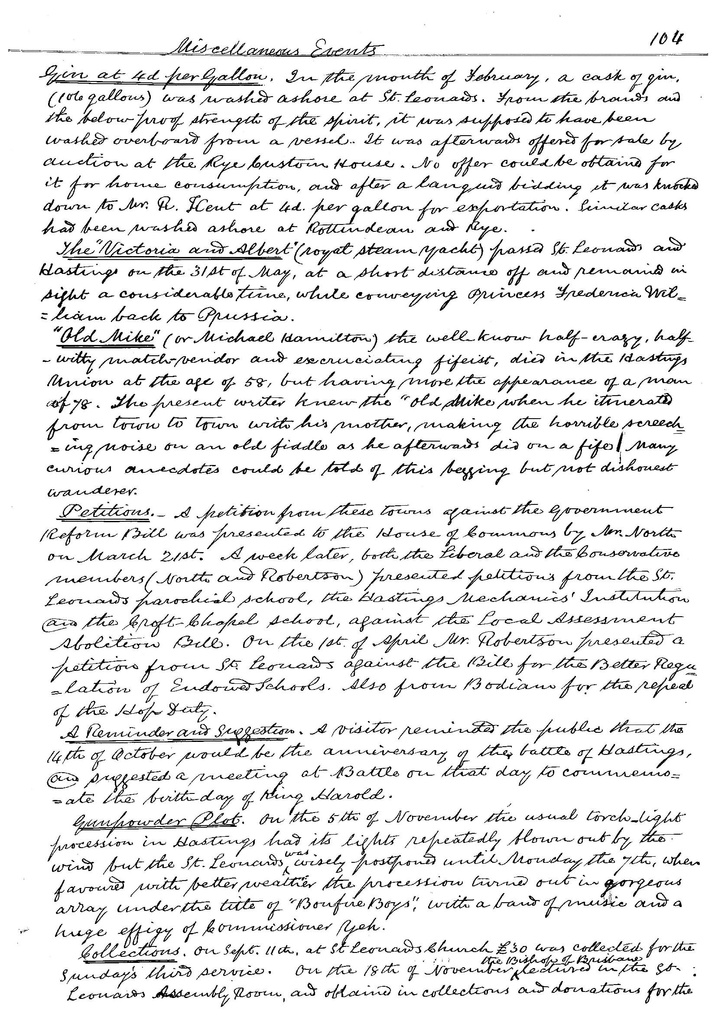 104
Miscellaneous Events
Gin at 4d per Gallon. In the month of February, a cask of gin,
(106 gallons) was washed ashore at St. Leonards. From the brands and
the below-proof strength of the spirit, it was supposed to have been
washed overboard from a vessel. It was afterwards offered for sale by
auction at the Rye Custom House. No offer could be obtained for
it for home consumption, and after a languid bidding it was knocked
down to Mr. R. Kent at 4d. per gallon for exportation. Similar casks
had been washed ashore at Rottindean and Rye.
The "Victoria and Albert" (royal steam yacht) passed St. Leonards and
Hastings on the 31st of May, at a short distance off and remained in
sight a considerable time, while conveying Princess Frederica Wil=
=liam back to Prussia.
"Old Mike" (or Michael Hamilton) the well know half-crazy, half-
-witty match-vendor and excruciating fifeist, died in the Hastings
Union at the age of 58, but having more the appearance of a man
of 78. The present writer knew the "Old Mike when he itinerated
from town to town with his mother, making the horrible screech=
=ing noise on an old fiddle as he afterwads did on a fife! Many
curious anecdotes could be told of this begging but not dishonest
wanderer.
Petitions. - A petition from these towns against the Government
Reform Bill was presented to the House of Commons by Mr. North
on March 21st. A week later, both the Liberal and the Conservative
members (North and Robertson) presented petitions from the St.
Leonards parochial school, the Hastings Mechanics' Institution
and the Croft-Chapel school, against the Local Assessment
Abolition Bill. On the 1st. of April Mr. Robertson presented a
petition from St Leonards against the Bill for the Better Regu=
=lation of Endowed Schools. Also from Bodiam for the repeal
of the Hop Duty.
A Reminder and Suggestion. A visitor reminded the public that the
14th of October would be the anniversary of the battle of Hastings,
and suggested a meeting at Battle on that day to commemo=
=ate the birth-day of King Harold.
Gunpowder Plot. On the 5th of November the usual torch-light
procession in Hastings had its lights repeatedly blown out by the
wind but the St. Leonards was wisely postponed until Monday the 7th, when
favoured with better weather the procession turned out in gorgeous
array under the title of "Bonfire Boys", with a band of music and a
huge effigy of Commissioner Yeh.
Collections. On Sept. 11th, at St Leonards Church £30 was collected for the
Sunday's third service. On the 18th of November the Bishop of Brisbane lectured in the St.
Leonards Assembly Room, and obtained in collections and donations for the